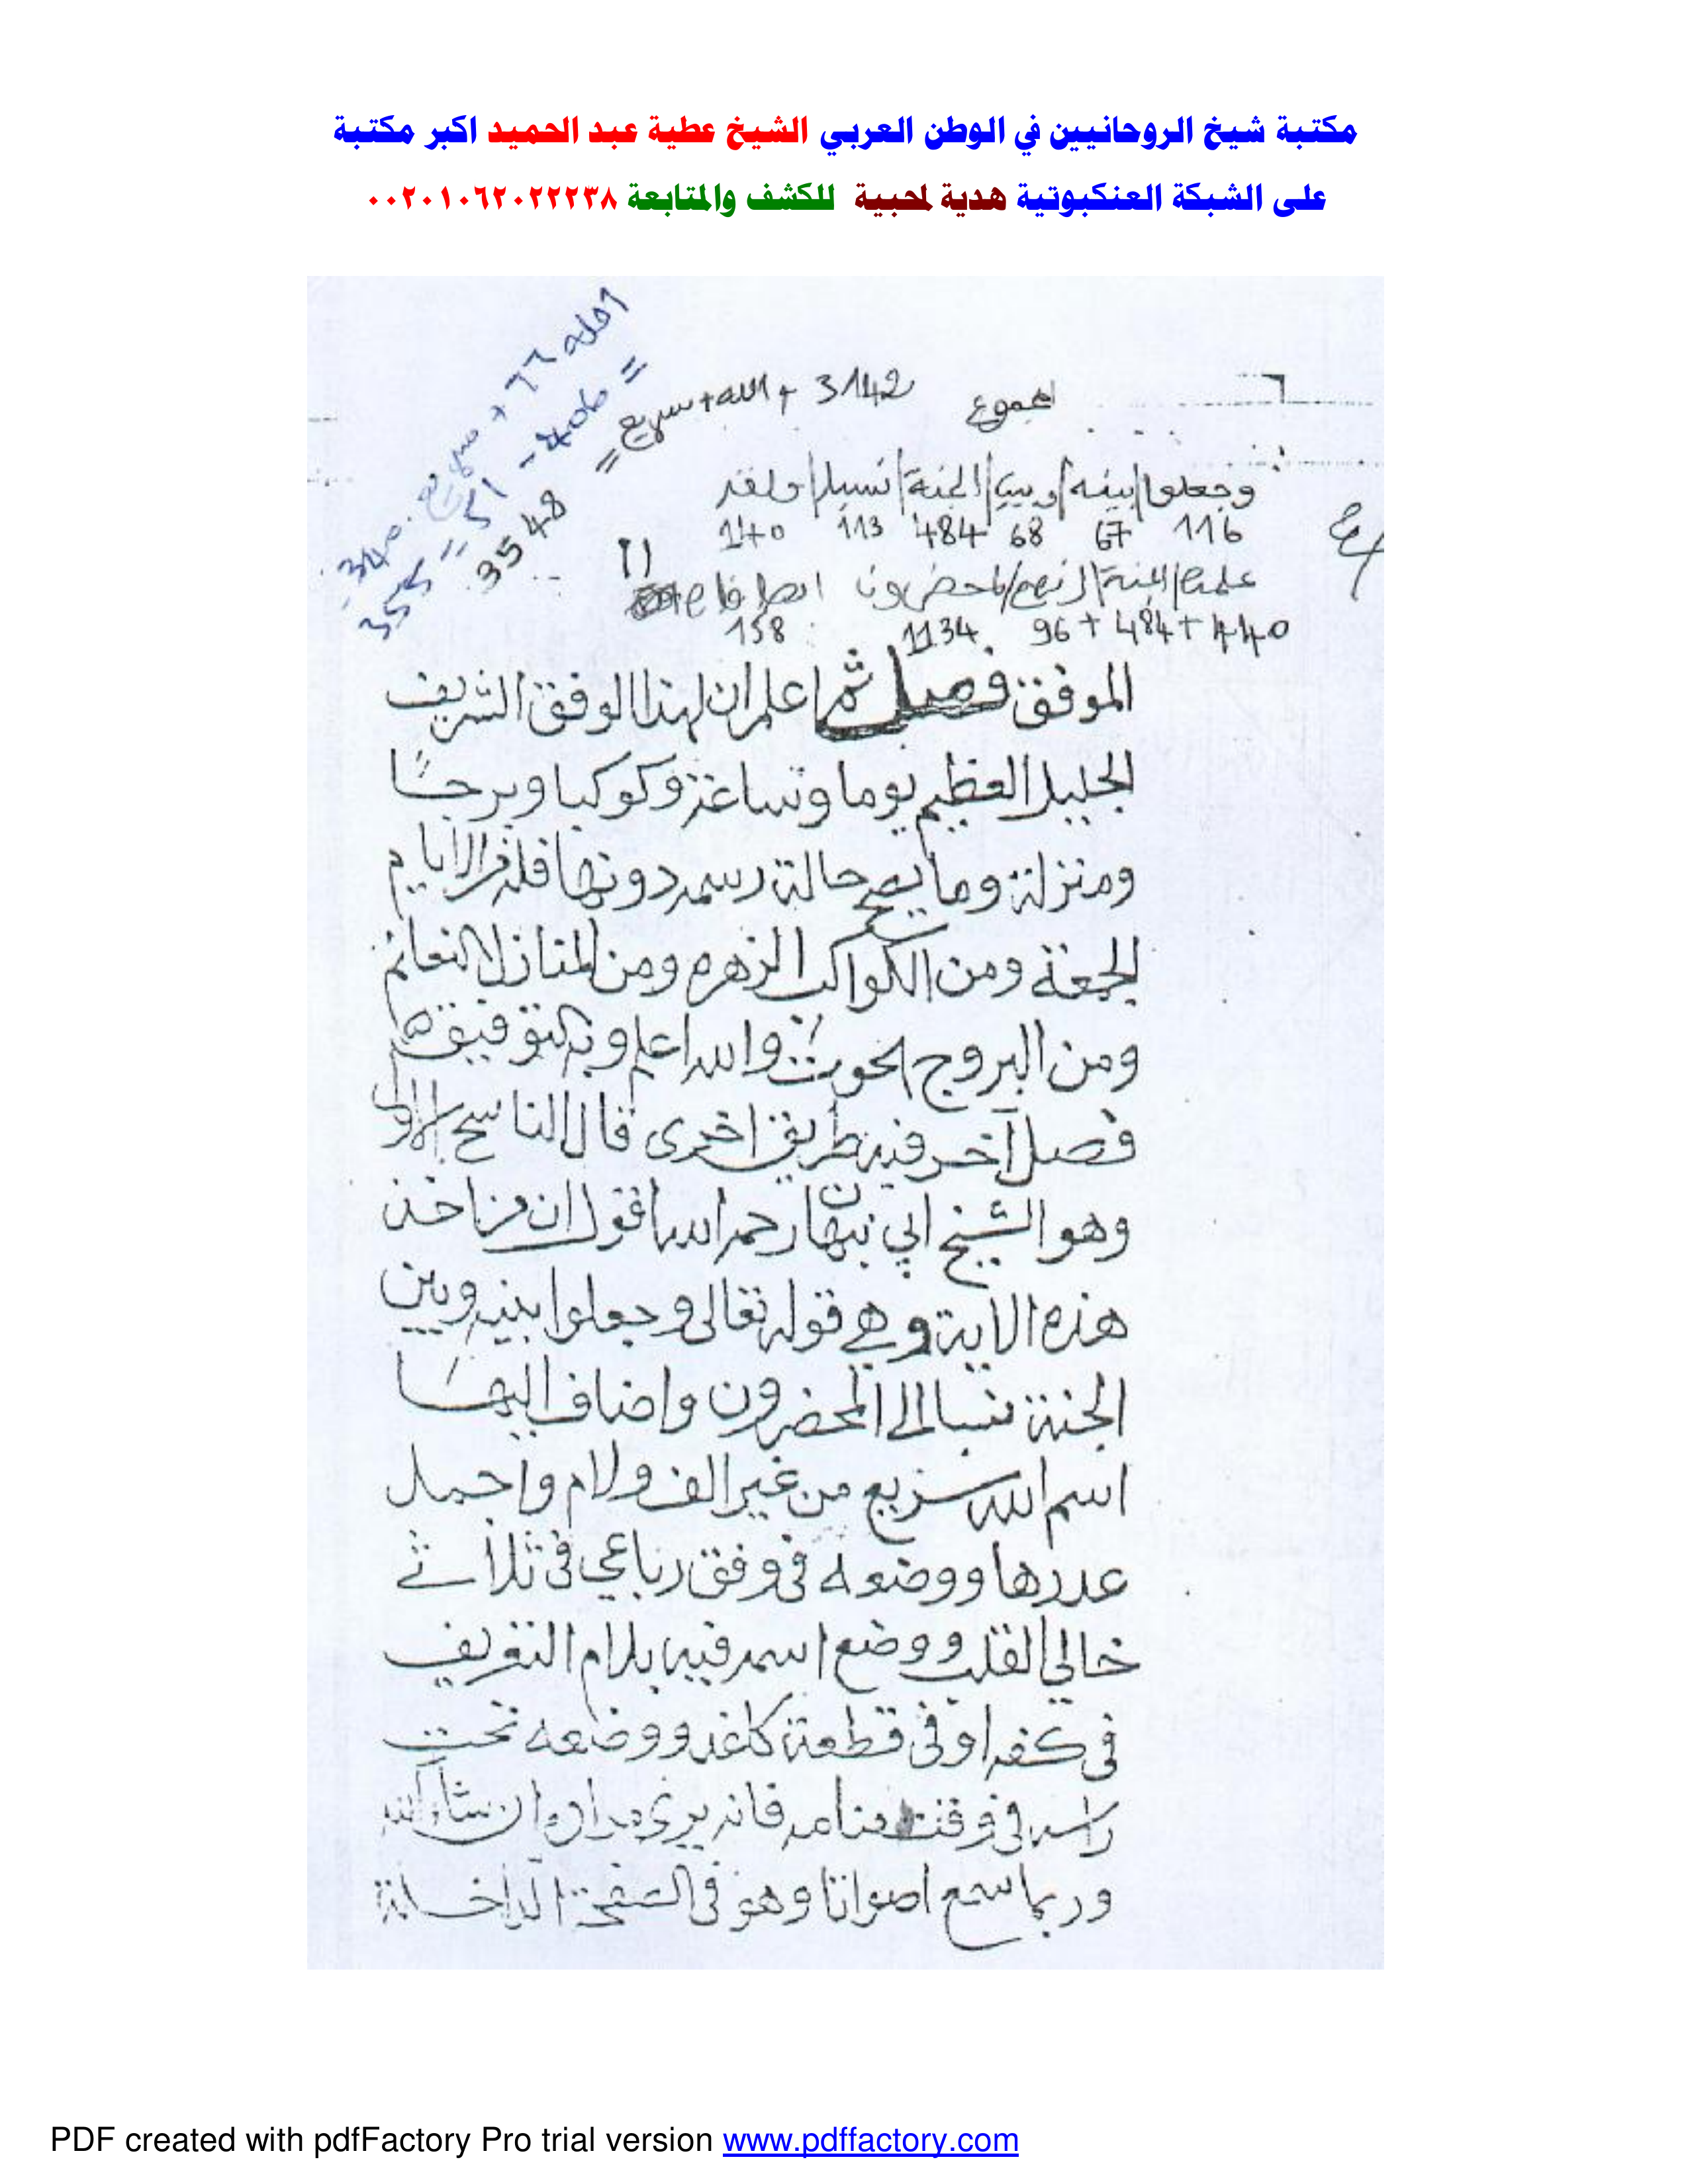 مكتبة شيخ الروحانيين في الوطن العربي الشيخ عطية عبد الحميد اكبر مكتبة
على الشبكة العنكبوتية هدية لمحبيه للكشف والمتابعة ٠٠٢٠١٠٦٢٠٢٢٢٣٨
المجموع 3142 + الله + سريع =
3548
وجعلوا / بينه / وبين / الجنة / نسبا / ولقد
116 67 68 484 113 140
علمت / الجنة / انهم / لمحضرون
440 + 484 + 96 1134 158
الموفق فصل ثم اعلم ان لهذا الوفق الشريف
الجليل العظيم يوما وساعة وكوكبا وبرجا
ومنزلة وما يصح حالة رسمه دونها فله من الايام
الجمعة ومن الكواكب الزهره ومن المنازل النعائم
ومن البروج الحوت والله اعلم وبه التوفيق
فصل آخر فيه طريق اخرى قال الناسخ الاول
وهو الشيخ ابي نبهان رحمه الله اقول ان من اخذ
هذه الاية وهي قوله تعالى وجعلوا بينه وبين
الجنة نسبا الى المحضرون واضاف اليها
اسم الله سريع من غير الف ولام واجمل
عددها ووضعه في وفق رباعي في ثلاثة
خالي القلب ووضع اسمه فيه بلام التعريف
في كفه او في قطعة كاغد ووضعه تحت
راسه في وقت منامه فانه يرى مراده ان شاء الله
وربما سمع اصواتا وهو في الصفحة الداخلة
PDF created with pdfFactory Pro trial version www.pdffactory.com